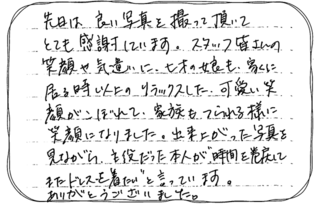 先日は、良い写真を撮って頂いて
とても感謝しています。スタッフ皆さんの
笑顔や気遣いに、七才の娘も、家に
居る時以上のリラックスした、可愛い笑
顔がこぼれて、家族もつられる様に
笑顔になりました。出来上がった写真を
見ながら、主役だった本人が"時間を巻戻して
またドレスを着たい"と言っています。
ありがとうございました。